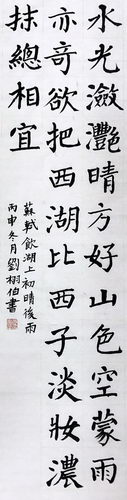 水光瀲灩晴方好山色空蒙雨
亦奇欲把西湖比西子淡妝濃
抹總相宜
蘇軾飲湖上初晴後雨
丙申冬月劉栩伯書